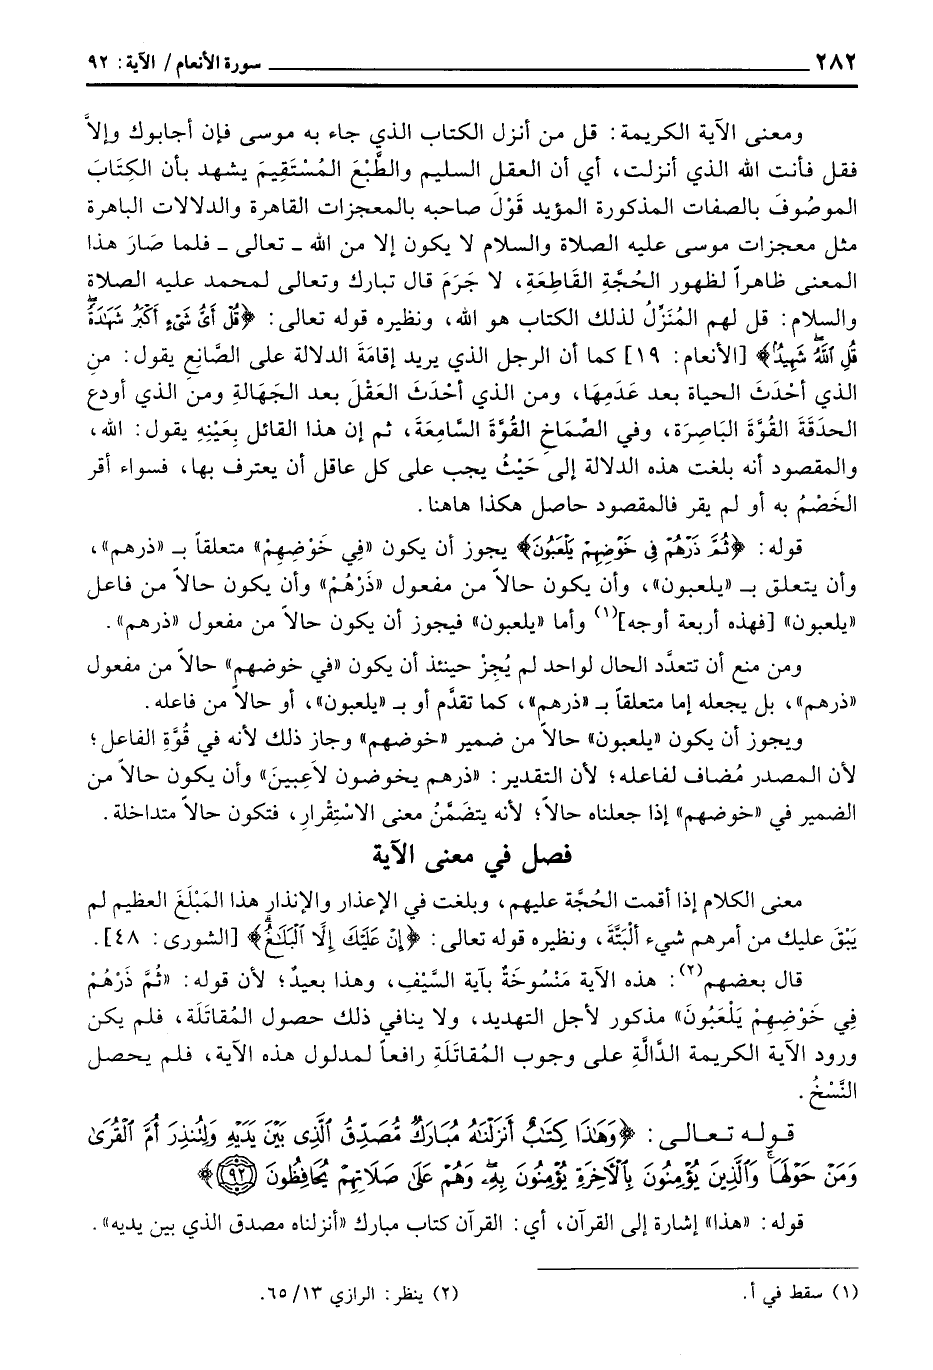 ٢٨٢ سورة الأنعام/ الآية: ٩٢
ومعنى الآية الكريمة: قل من أنزل الكتاب الذي جاء به موسى فإن أجابوك وإلاَّ
فقل فأنت الله الذي أنزلت، أي أن العقل السليم والطَّبْعَ المُسْتَقِيمَ يشهد بأن الكِتَابَ
الموصُوفَ بالصفات المذكورة المؤيد قَوْلَ صاحبه بالمعجزات القاهرة والدلالات الباهرة
مثل معجزات موسى عليه الصلاة والسلام لا يكون إلا من الله ـ تعالى ـ فلما صَارَ هذا
المعنى ظاهراً لظهور الحُجَّةِ القَاطِعَةِ، لا جَرَمَ قال تبارك وتعالى لمحمد عليه الصلاة
والسلام: قل لهم المُنَزِّلُ لذلك الكتاب هو الله، ونظيره قوله تعالى: ﴿قُلْ أَىُّ شَىْءٍ أَكْبَرُ شَهَٰدَةً
قُلِ ٱللَّهُ شَهِيدٌ﴾ [الأنعام: ١٩] كما أن الرجل الذي يريد إقامَةَ الدلالة على الصَّانِعِ يقول: منِ
الذي أحْدَثَ الحياة بعد عَدَمِهَا، ومن الذي أحْدَثَ العَقْلَ بعد الجَهَالةِ ومن الذي أودع
الحدَقَةَ القُوَّةَ البَاصِرَة، وفي الصِّمَاخِ القُوَّةَ السَّامِعَةَ، ثم إن هذا القائل بِعَيْنِهِ يقول: الله،
والمقصود أنه بلغت هذه الدلالة إلى حَيْثُ يجب على كل عاقل أن يعترف بها، فسواء أقر
الخَصْمُ به أو لم يقر فالمقصود حاصل هكذا هاهنا.
قوله: ﴿ثُمَّ ذَرْهُمْ فِى خَوْضِهِمْ يَلْعَبُونَ﴾ يجوز أن يكون «فِي خَوْضِهِمْ» متعلقاً بـ «ذرهم»،
وأن يتعلق بـ «يلعبون»، وأن يكون حالاً من مفعول «ذَرْهُمْ» وأن يكون حالاً من فاعل
«يلعبون» [فهذه أربعة أوجه](١) وأما «يلعبون» فيجوز أن يكون حالاً من مفعول «ذرهم».
ومن منع أن تتعدَّد الحال لواحد لم يُجِزْ حينئذ أن يكون «في خوضهم» حالاً من مفعول
«ذرهم»، بل يجعله إما متعلقاً بـ «ذرهم»، كما تقدَّم أو بـ «يلعبون»، أو حالاً من فاعله.
ويجوز أن يكون «يلعبون» حالاً من ضمير «خوضهم» وجاز ذلك لأنه في قُوَّةِ الفاعل؛
لأن المصدر مُضاف لفاعله؛ لأن التقدير: «ذرهم يخوضون لاَعِبينَ» وأن يكون حالاً من
الضمير في «خوضهم» إذا جعلناه حالاً؛ لأنه يتضَمَّنُ معنى الاسْتِقْرارِ، فتكون حالاً متداخلة.
فصل في معنى الآية
معنى الكلام إذا أقمت الحُجَّة عليهم، وبلغت في الإعذار والإنذار هذا المَبْلَغَ العظيم لم
يَبْقَ عليك من أمرهم شيء ألْبَتَّةَ، ونظيره قوله تعالى: ﴿إِنْ عَلَيْكَ إِلَّا ٱلْبَلَٰغُ﴾ [الشورى: ٤٨].
قال بعضهم(٢): هذه الآية مَنْسُوخَةٌ بآية السَّيْفِ، وهذا بعيدٌ؛ لأن قوله: «ثُمَّ ذَرْهُمْ
فِي خَوْضِهِمْ يَلْعَبُونَ» مذكور لأجل التهديد، ولا ينافي ذلك حصول المُقاتَلَة، فلم يكن
ورود الآية الكريمة الدَّالَّةِ على وجوب المُقاتَلَةِ رافعاً لمدلول هذه الآية، فلم يحصل
النَّسْخُ.
قوله تعالى: ﴿وَهَٰذَا كِتَٰبٌ أَنزَلْنَٰهُ مُبَارَكٌ مُّصَدِّقُ ٱلَّذِى بَيْنَ يَدَيْهِ وَلِتُنذِرَ أُمَّ ٱلْقُرَىٰ
وَمَنْ حَوْلَهَا وَٱلَّذِينَ يُؤْمِنُونَ بِٱلْءَاخِرَةِ يُؤْمِنُونَ بِهِۦ وَهُمْ عَلَىٰ صَلَاتِهِمْ يُحَافِظُونَ ٩٢﴾
قوله: «هذا» إشارة إلى القرآن، أي: القرآن كتاب مبارك «أنزلناه مصدق الذي بين يديه».
(١) سقط في أ. (٢) ينظر: الرازي ١٣/ ٦٥.